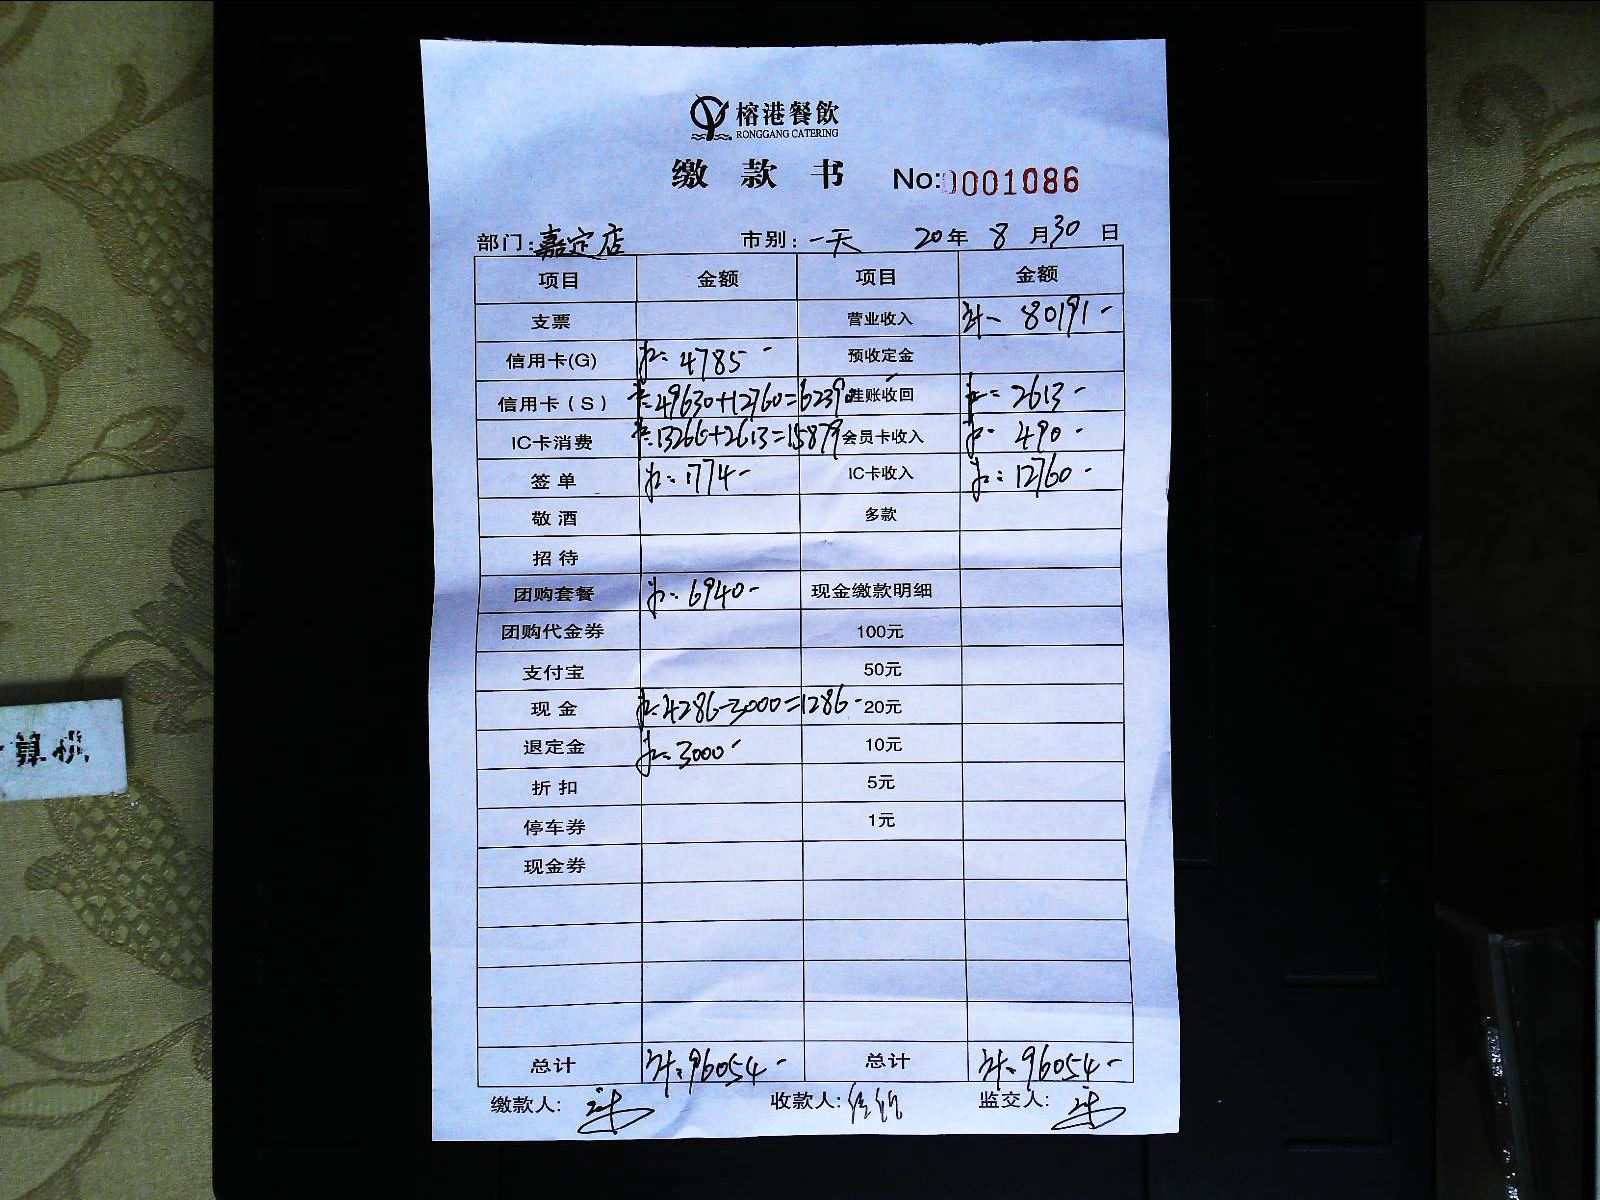 榕港餐飲
RONGGANG CATERING
缴款书 No:0001086
部门:嘉定店 市别:一天 20年 8月30日
项目 金额 项目 金额
支票 营业收入 80191-
信用卡(G) 4785- 预收定金
信用卡(S) 49630+12760=62390 挂账收回 2613-
IC卡消费 13266+2613=15879 会员卡收入 490-
签单 1774- IC卡收入 12760-
敬酒 多款
招待
团购套餐 6940- 现金缴款明细
团购代金券 100元
支付宝 50元
现金 4286-3000=1286- 20元
退定金 3000- 10元
折扣 5元
停车券 1元
现金券
总计 96054- 总计 96054-
缴款人: 收款人: 监交人:
算